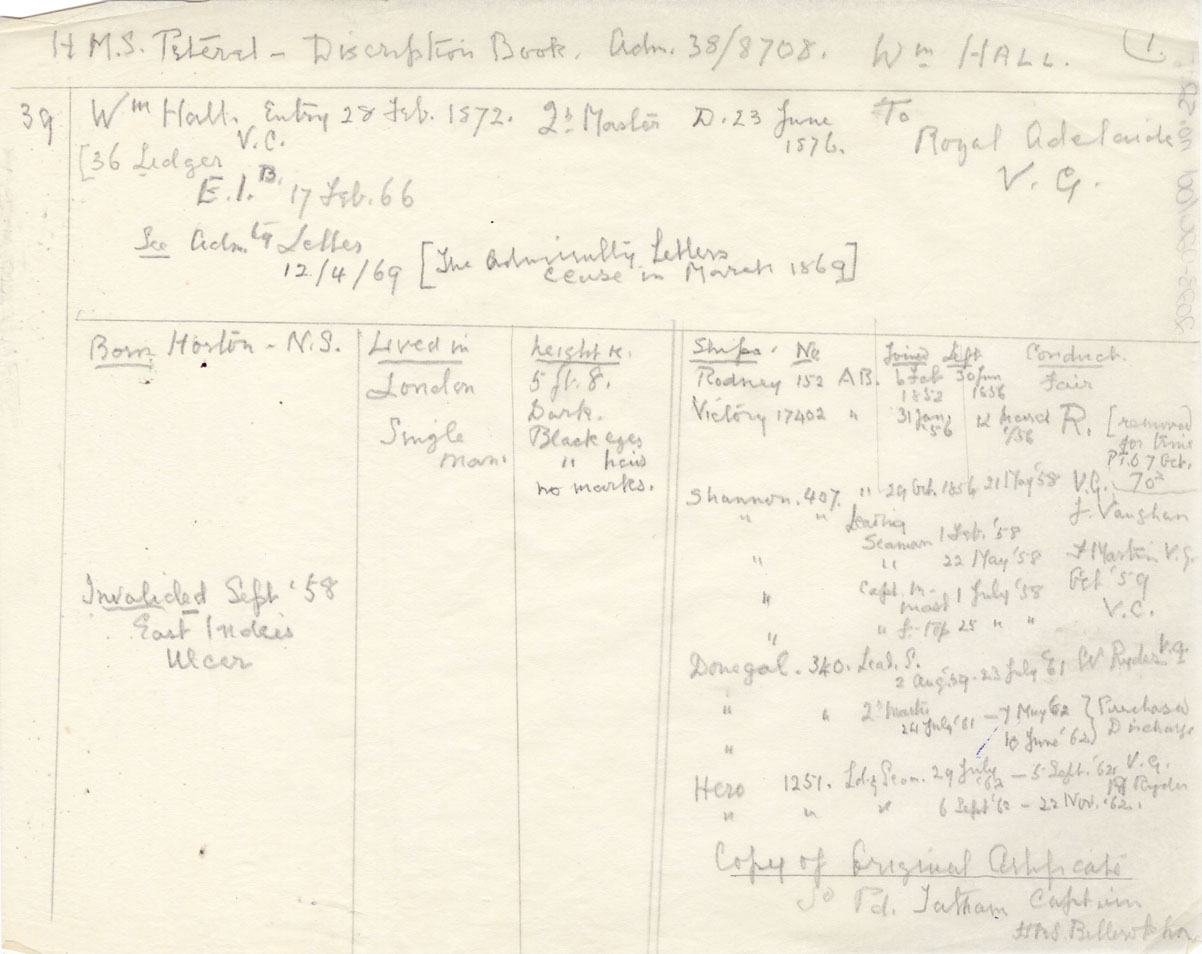 H.M.S. Peterel - Discription Book. Adm. 38/8708. Wm HALL. 1.
39 Wm Hall. Entry 28 Feb. 1872. 2d Master D. 23 June 1876. To Royal Adelaide
V.C.
V.G.
[36 Ledger
E.I.B. 17 Feb. 66
See Admlty Letter
12/4/69 [The Admiralty Letters
cease in March 1869]
Born Horton - N.S.
Invalided Sept '58
East Indies
Ulcer
Lived in
London
Single
man.
height &c.
5 ft. 8.
Dark.
Black eyes
" hair
no marks.
Ships. No Joined Left Conduct.
Rodney 152 A.B. 6 Feb 1852 30 Jan 1856 Fair
Victory 17402 " 31 Jan '56 12 '56 R. [removed
for
P.T.O 7 Oct.
Shannon. 407. " 29 Oct. 1856 21 May '58 V.G.
" " Leading J. Vaughan
Seaman 1 Feb. '58
" " 22 May '58 F Martin V.G.
" Capt. m- Oct '59
mast 1 July '58 V.C.
" " f-top 25 " "
Donegal. 340. Lead. S.
2 Aug '59 - 23 July 61 W Ryder V.G.
" " 2d Master
24 July '61 - 7 May 62 } Purchased
" 10 June '62 } Discharge
Hero 1251. Ldg Seam. 29 July '62 - 5 Sept. '62 V.G.
Ryder
" " " 6 Sept '62 - 22 Nov. '62.
Copy of Original Certificate
Tatham Captain
HMS. Bellerophon